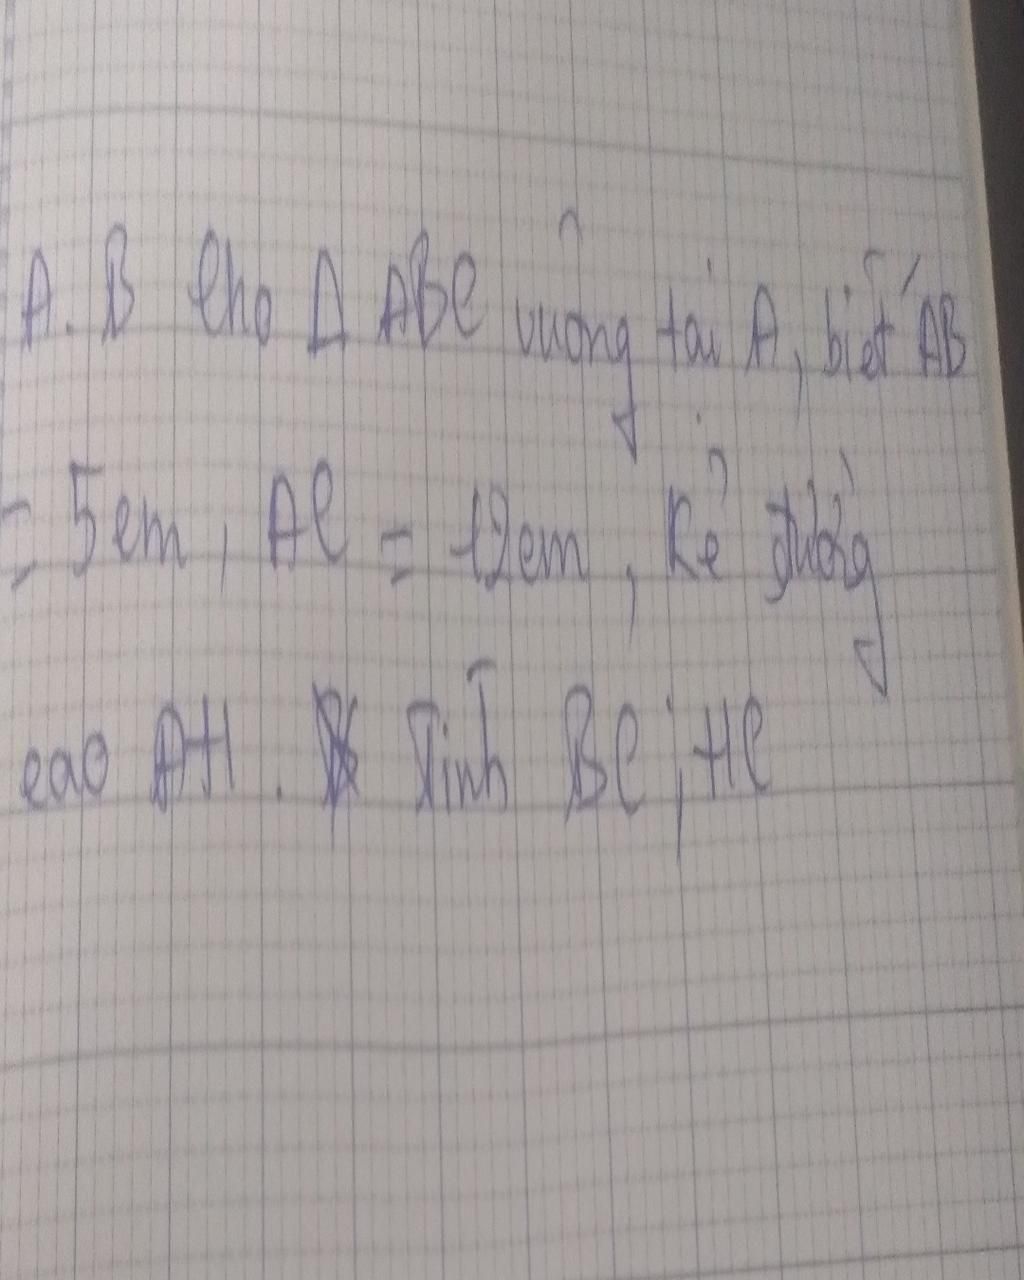 A. B Cho Δ ABC vuông tại A, biết AB
= 5cm, AC = 12cm, Kẻ đường
cao AH. Tính BC, HC